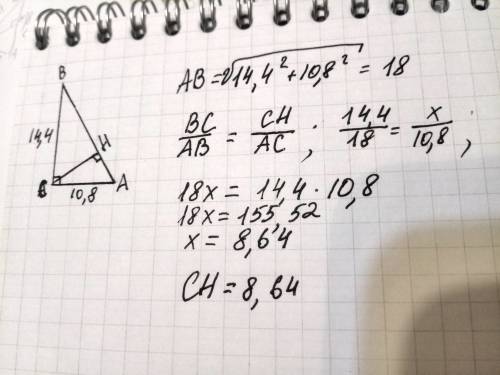 B
14,4
H
C
A
10,8
AB = √14,4² + 10,8² = 18
BC/AB = CH/AC ; 14,4/18 = x/10,8 ;
18x = 14,4 · 10,8
18x = 155,52
x = 8,64
CH = 8,64